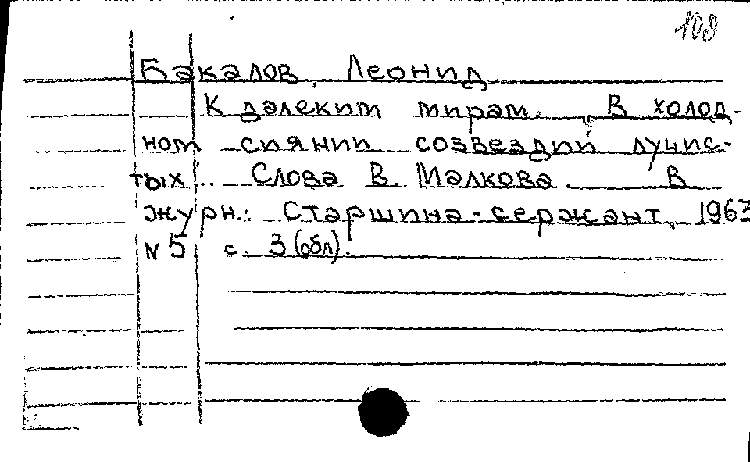 108
Бакалов, Леонид
К далеким мирам. В холод-
ном сиянии созвездий лучис-
тых.. Слова В. Малкова. В
журн.: Старшина-сержант, 1963
N 5 с. 3 (обл).